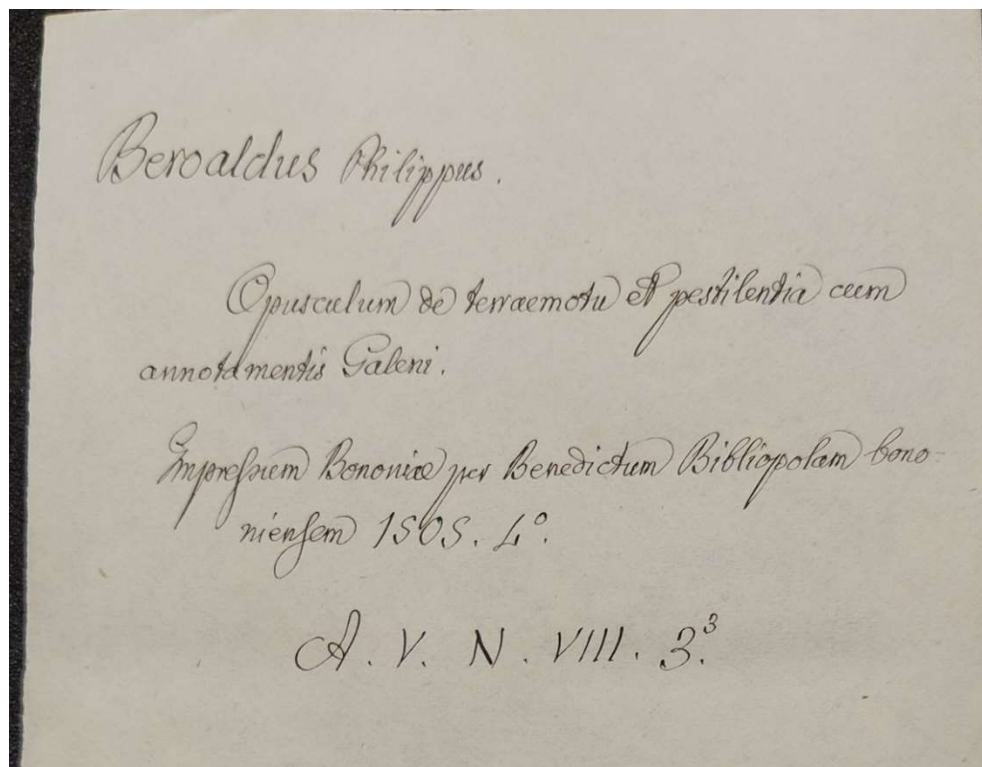 Beroaldus Philippus.
Opusculum de terraemotu et pestilentia cum
annotamentis Galeni.
Impressum Bononiæ per Benedictum Bibliopolam bono-
niensem 1505. 4°.
A. V. N. VIII. 3³.